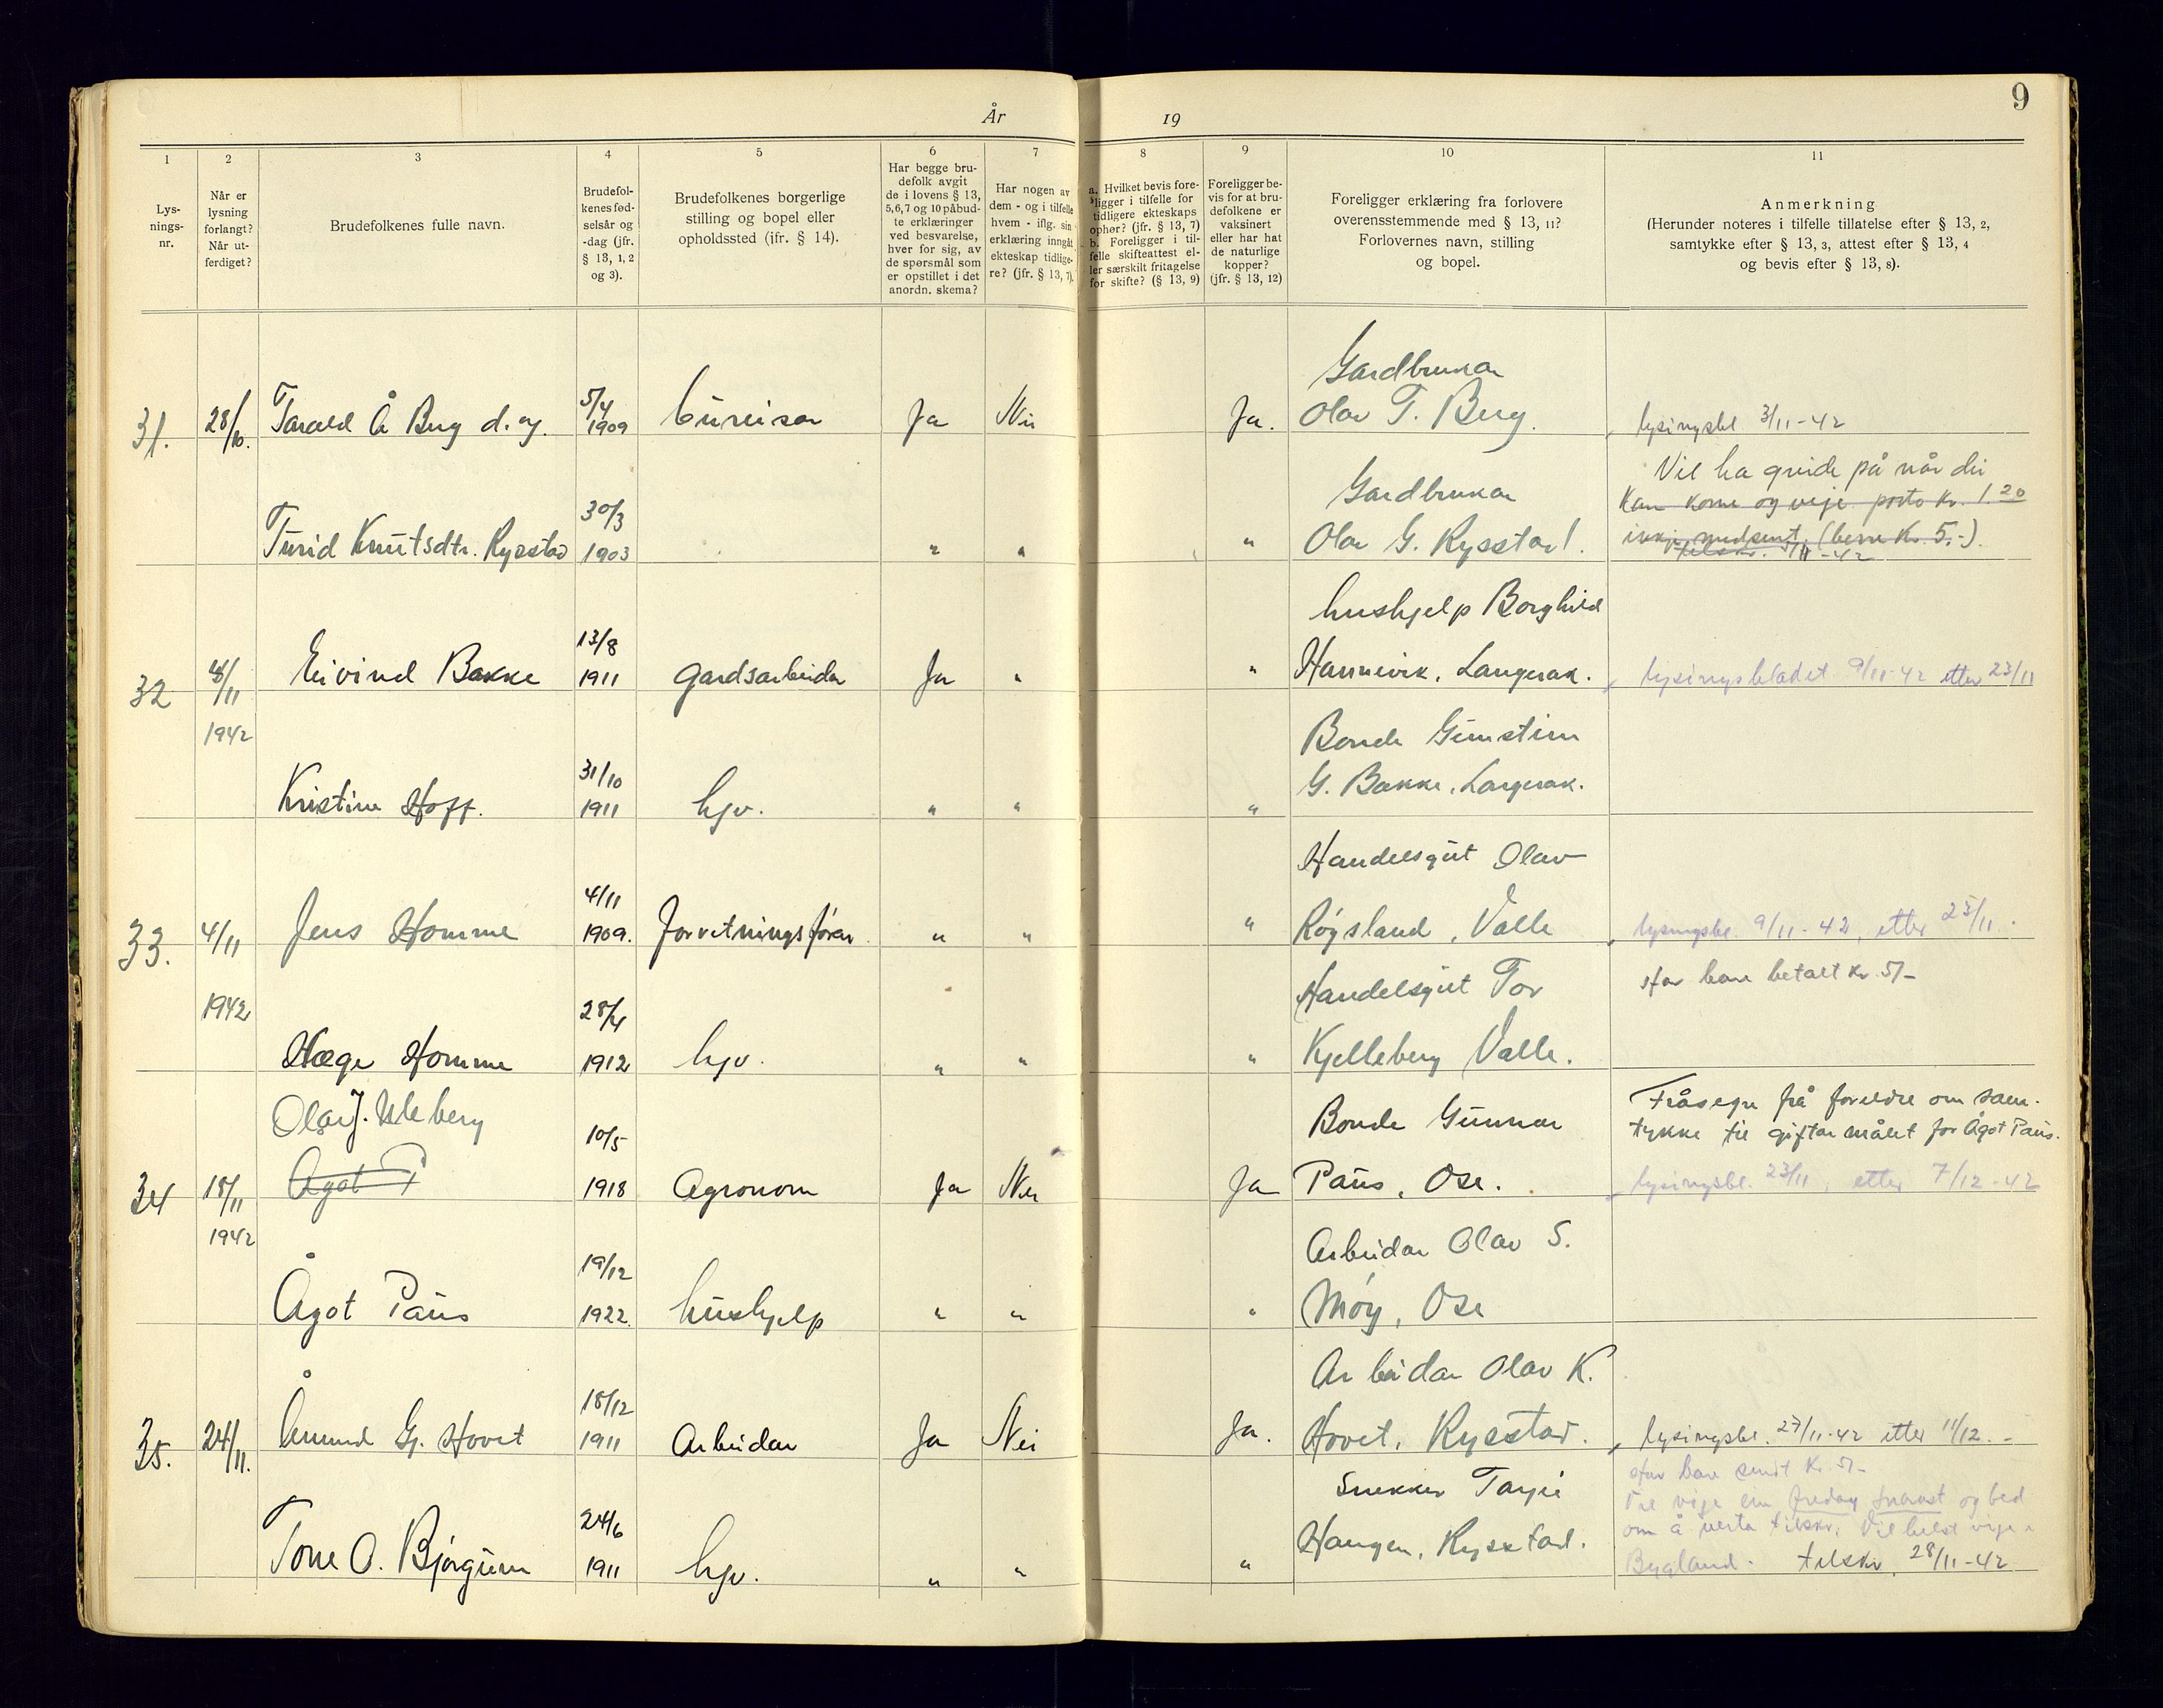 År 19
9
1
Lys-
nings-
nr.
2
Når er
lysning
forlangt?
Når ut-
ferdiget?
3
Brudefolkenes fulle navn.
4
Brudefol-
kenes fød-
selsår og
-dag (jfr.
§ 13, 1, 2
og 3).
5
Brudefolkenes borgerlige
stilling og bopel eller
opholdssted (jfr. § 14).
6
Har begge bru-
defolk avgit
de i lovens § 13,
5, 6, 7 og 10 påbud-
te erklæringer
ved besvarelse,
hver for sig, av
de spørsmål som
er opstillet i det
anordn. skema?
7
Har nogen av
dem - og i tilfelle
hvem - iflg. sin
erklæring inngått
ekteskap tidlige-
re? (jfr. § 13, 7).
8
a. Hvilket bevis fore-
ligger i tilfelle for
tidligere ekteskaps
ophør? (jfr. § 13, 7)
b. Foreligger i til-
felle skifteattest el-
ler særskilt fritagelse
for skifte? (§ 13, 9)
9
Foreligger be-
vis for at bru-
defolkene er
vaksinert
eller har hat
de naturlige
kopper?
(jfr. § 13, 12)
10
Foreligger erklæring fra forlovere
overensstemmende med § 13, 11?
Forlovernes navn, stilling
og bopel.
11
Anmerkning
(Herunder noteres i tilfelle tillatelse efter § 13, 2,
samtykke efter § 13, 3, attest efter § 13, 4
og bevis efter § 13, 8).
Gardbrukar
31. 28/10. Tarald Å Berg d. y. 5/4 1909 bureisar Ja Nei Ja. Olav T. Berg. lysingsbl. 3/11-42
Vil ha greide på når dei
Gardbrukar
kan kome og vige. porto kr. 1.20
Turid Knutsdtr. Rysstad 30/3 1903 " " " Olav G. Rysstad. ikkje medsent (berre kr. 5.-).
tilskr. 3/11-42
hushjelp Borghild
32 4/11 Eivind Bakke 13/8 1911 gardsarbeidar Ja " " Hannevik, Langerak. lysingsbladet 9/11-42 etter 23/11
1942
Bonde Gunstein
Kristine Hoff. 31/10 1911 hjv. " " " G. Bakke, Langerak.
Handelsgut Olav
33. 4/11 Jens Homme 4/11 1909. forretningsfører " " " Røysland, Valle lysingsbl. 9/11-42, etter 23/11.
1942
Har bare betalt kr. 5/-
Handelsgut Tor
Hæge Homme 28/4 1912 hjv. " " " Kjelleberg Valle.
Olav J. Uleberg
Fråsegn frå foreldre om sam-
tykke til giftarmålet for Ågot Paus.
Bonde Gunnar
34 18/11 Ågot P 10/5 1918 Agronom Ja Nei Ja Paus, Ose. lysingsbl. 23/11, etter 7/12-42
1942
Arbeidar Olav S.
Ågot Paus 19/12 1922. hushjelp " " " Moy, Ose
Arbeidar Olav K.
35. 24/11. Åmund G. Hovet 18/12 1911 Arbeidar Ja Nei Ja. Hovet, Rysstad. lysingsbl. 27/11-42 etter 11/12.-
Har bare sendt kr. 5/-
Snekker Tarjei
Vil vige ein fredag snarast og bed
om å verta tilskr. Vil helst vige
Tone O. Bjørgum 24/6 1911 hjv. " " " Haugen, Rysstad. Bygland. tilskr. 28/11-42